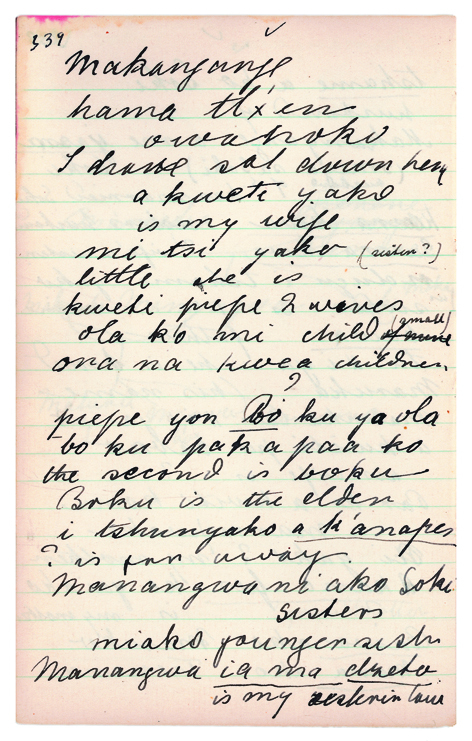 339
Makanganje
hama tl'xen
owahoko
I have sat down here
a kweti yako
is my wife
mi tsi yako (sister?)
little she is
kweti piepe 2 wives
(small)
ola ko mi child of mine
ona na kwea children
?
piepe yon Bo ku ya ola
bo ku paka paa ko
the second is boku
Boku is the elder
i tshunyako a k'anapes
? is far away.
Manangwa ni ako Soki
sisters
miako younger sister
Manangwa ia ma dzeto
is my in law